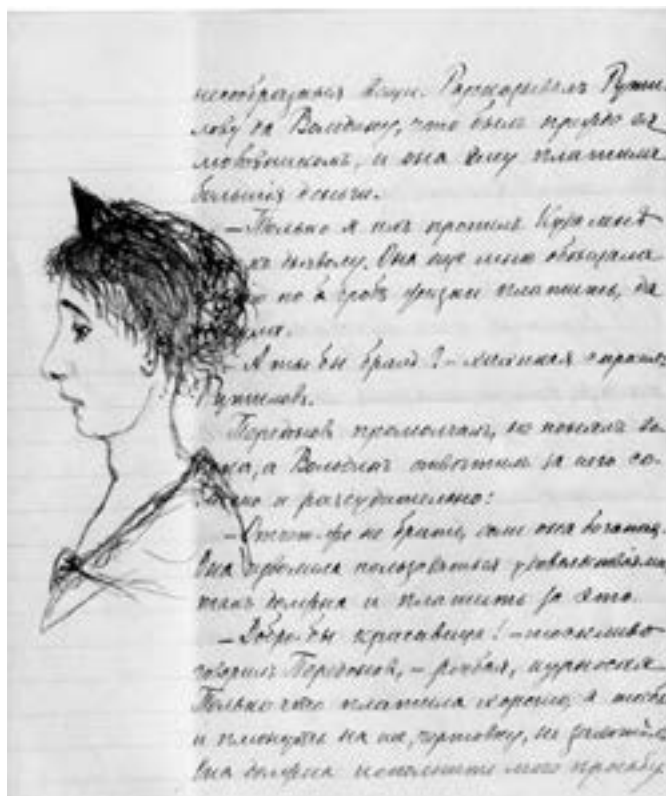 несообразныя вещи. Разсказывалъ Рути-
лову да Володину, что былъ прежде ея
любовникомъ, и она ему платила
большія деньги.
— Только я ихъ пропилъ. Куда мнѣ
ихъ къ дьяволу. Она еще мнѣ обѣщала
по гробъ жизни платить, да
надула.
— А ты бы бралъ? — хихикая спросилъ
Рутиловъ.
Передоновъ промолчалъ, не понялъ во-
проса, а Володинъ отвѣтилъ за него со-
лидно и разсудительно:
— Отчего-же не брать, если она богатая.
Она изволила пользоваться удовольствіями,
такъ должна и платить за это.
— Добро бы красавица! — тоскливо
говорилъ Передоновъ, — рябая, курносая.
Только что платила хорошо, а то бы
и плюнуть на нее, чертовку, не захотѣлъ.
Она должна исполнить мою просьбу